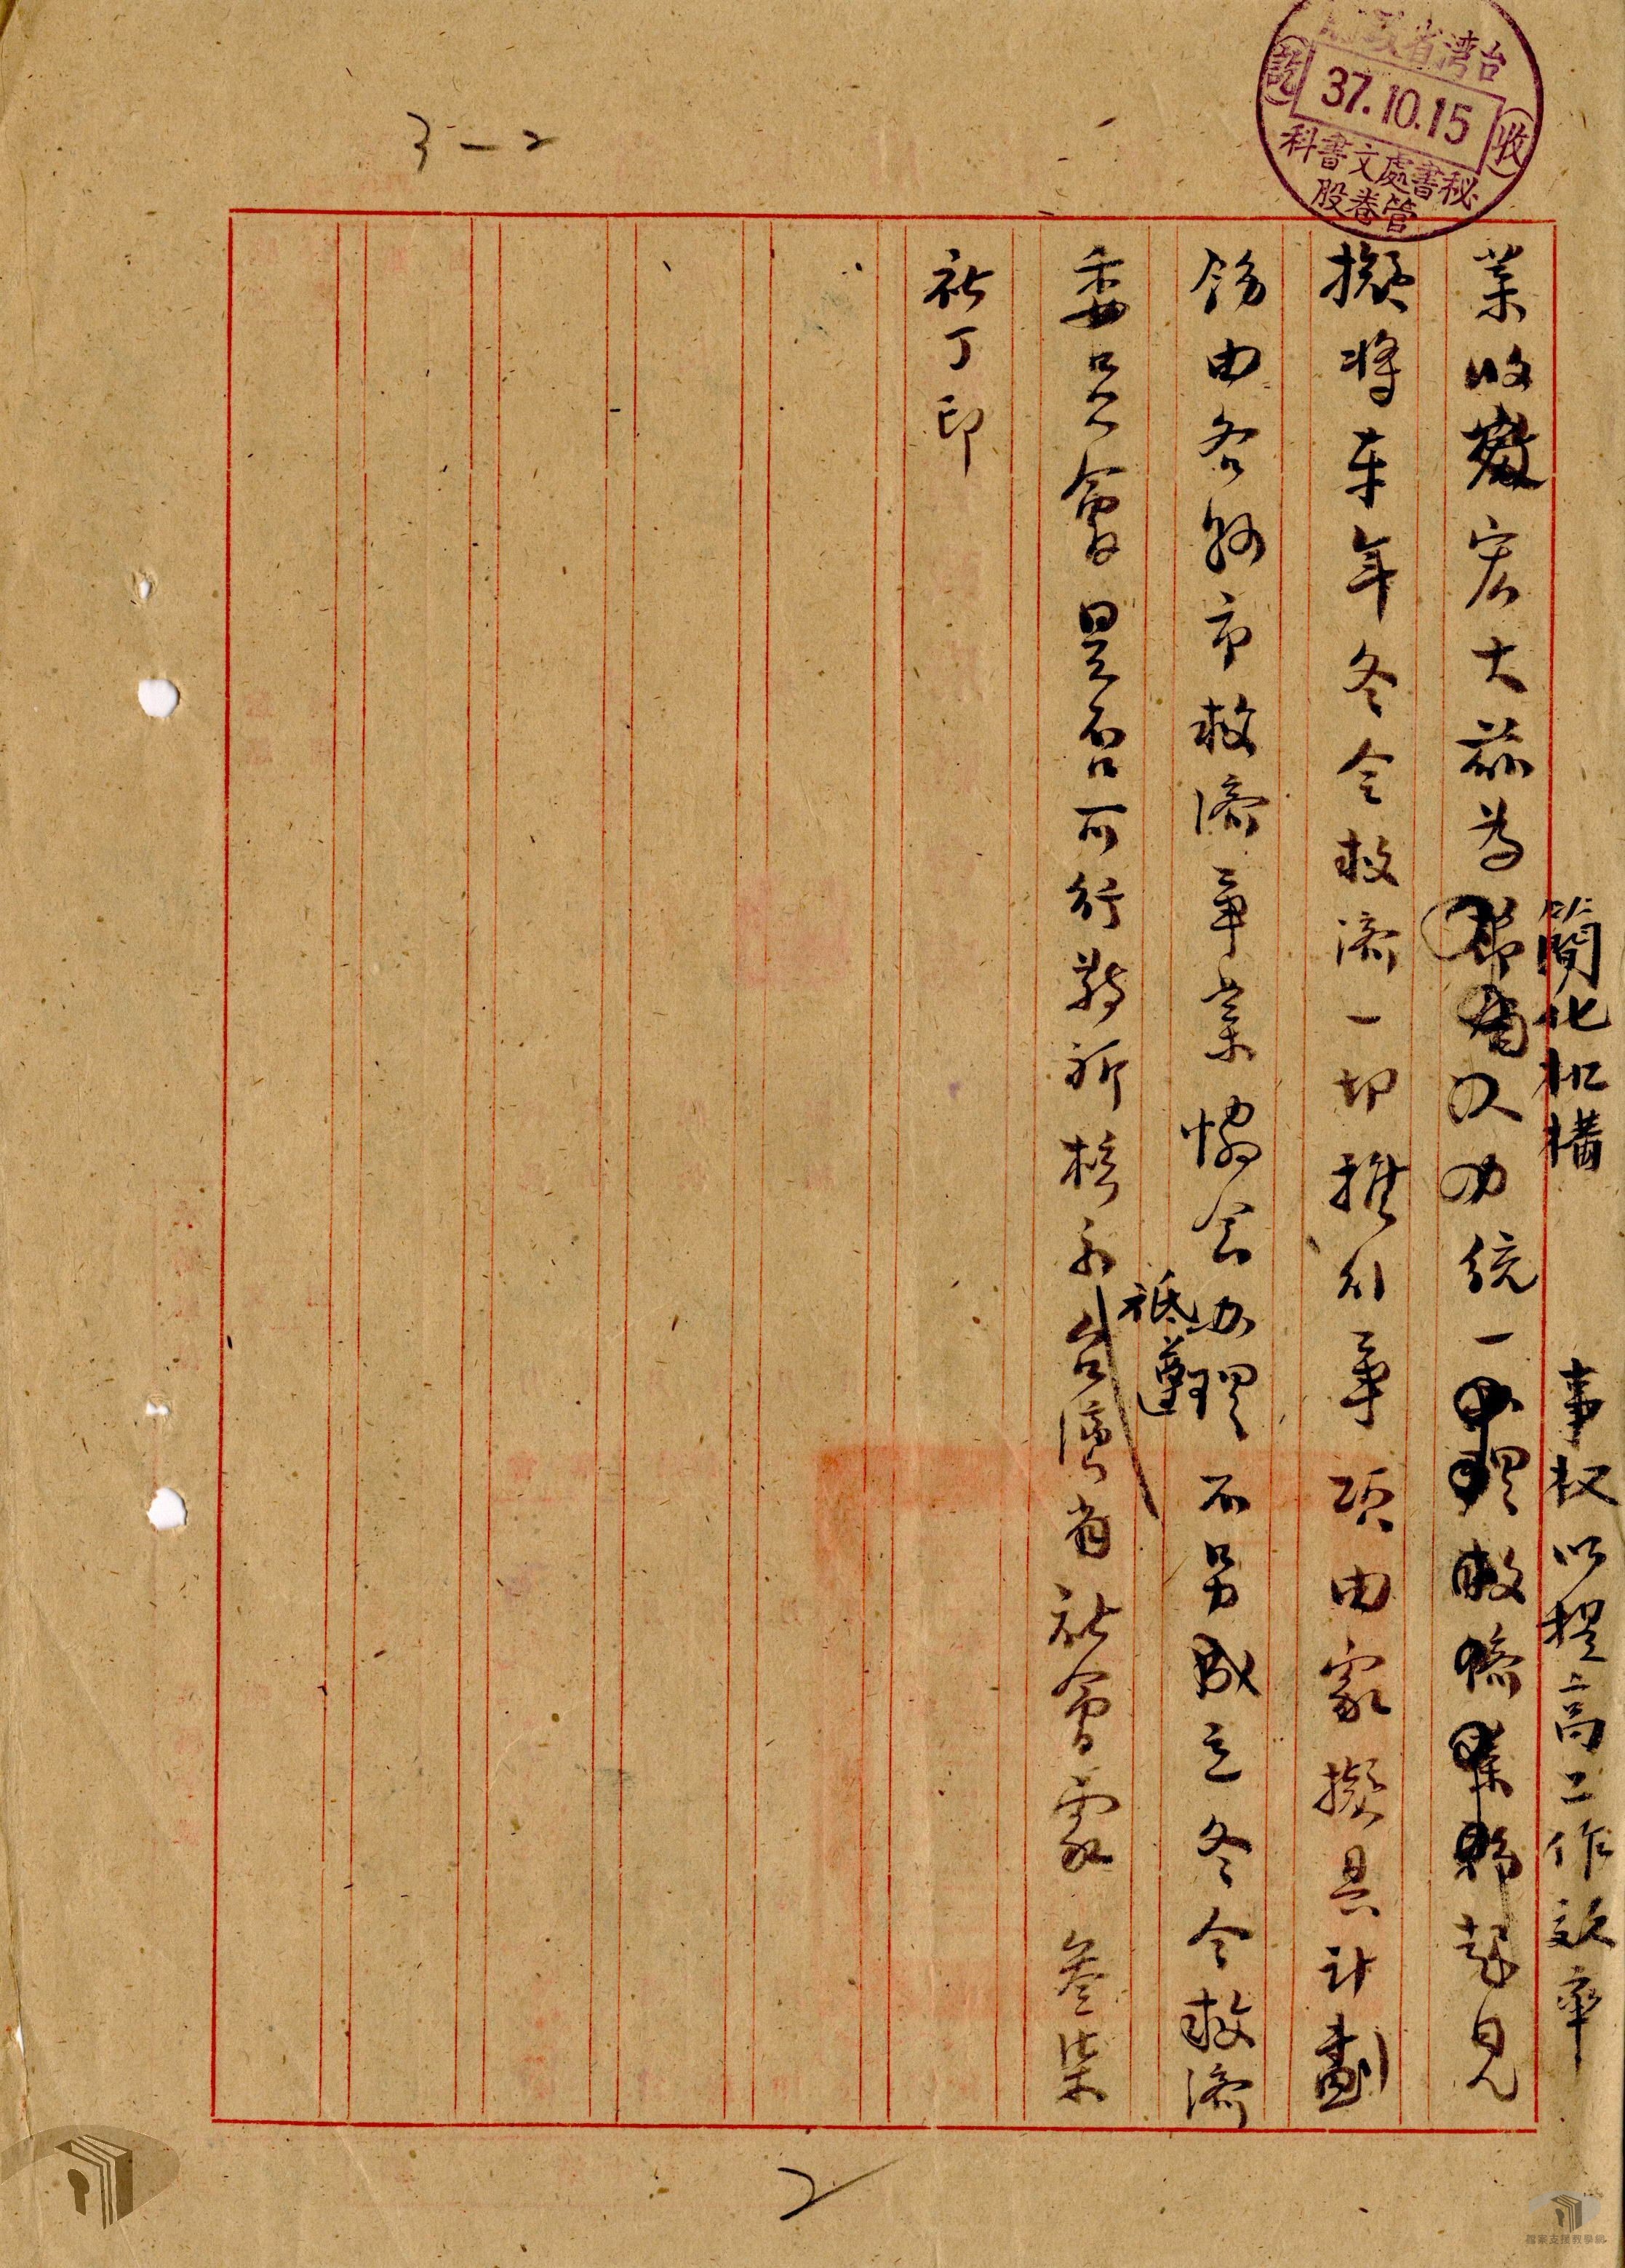 台灣省政府
收
37.10.15
訖
秘書處文書科
管卷股
3-2
簡化机構 事权以提高工作效率
業收效宏大茲為 及力統一 理救濟業務起見
擬將本年冬令救濟一切推行事項由家擬具計劃
飭由各縣市救濟事業協会办理不另成立冬令救濟
委員會是否可行敬祈核示祗遵台灣省社會處 叁柒
社丁印
2
檔案支援教學網